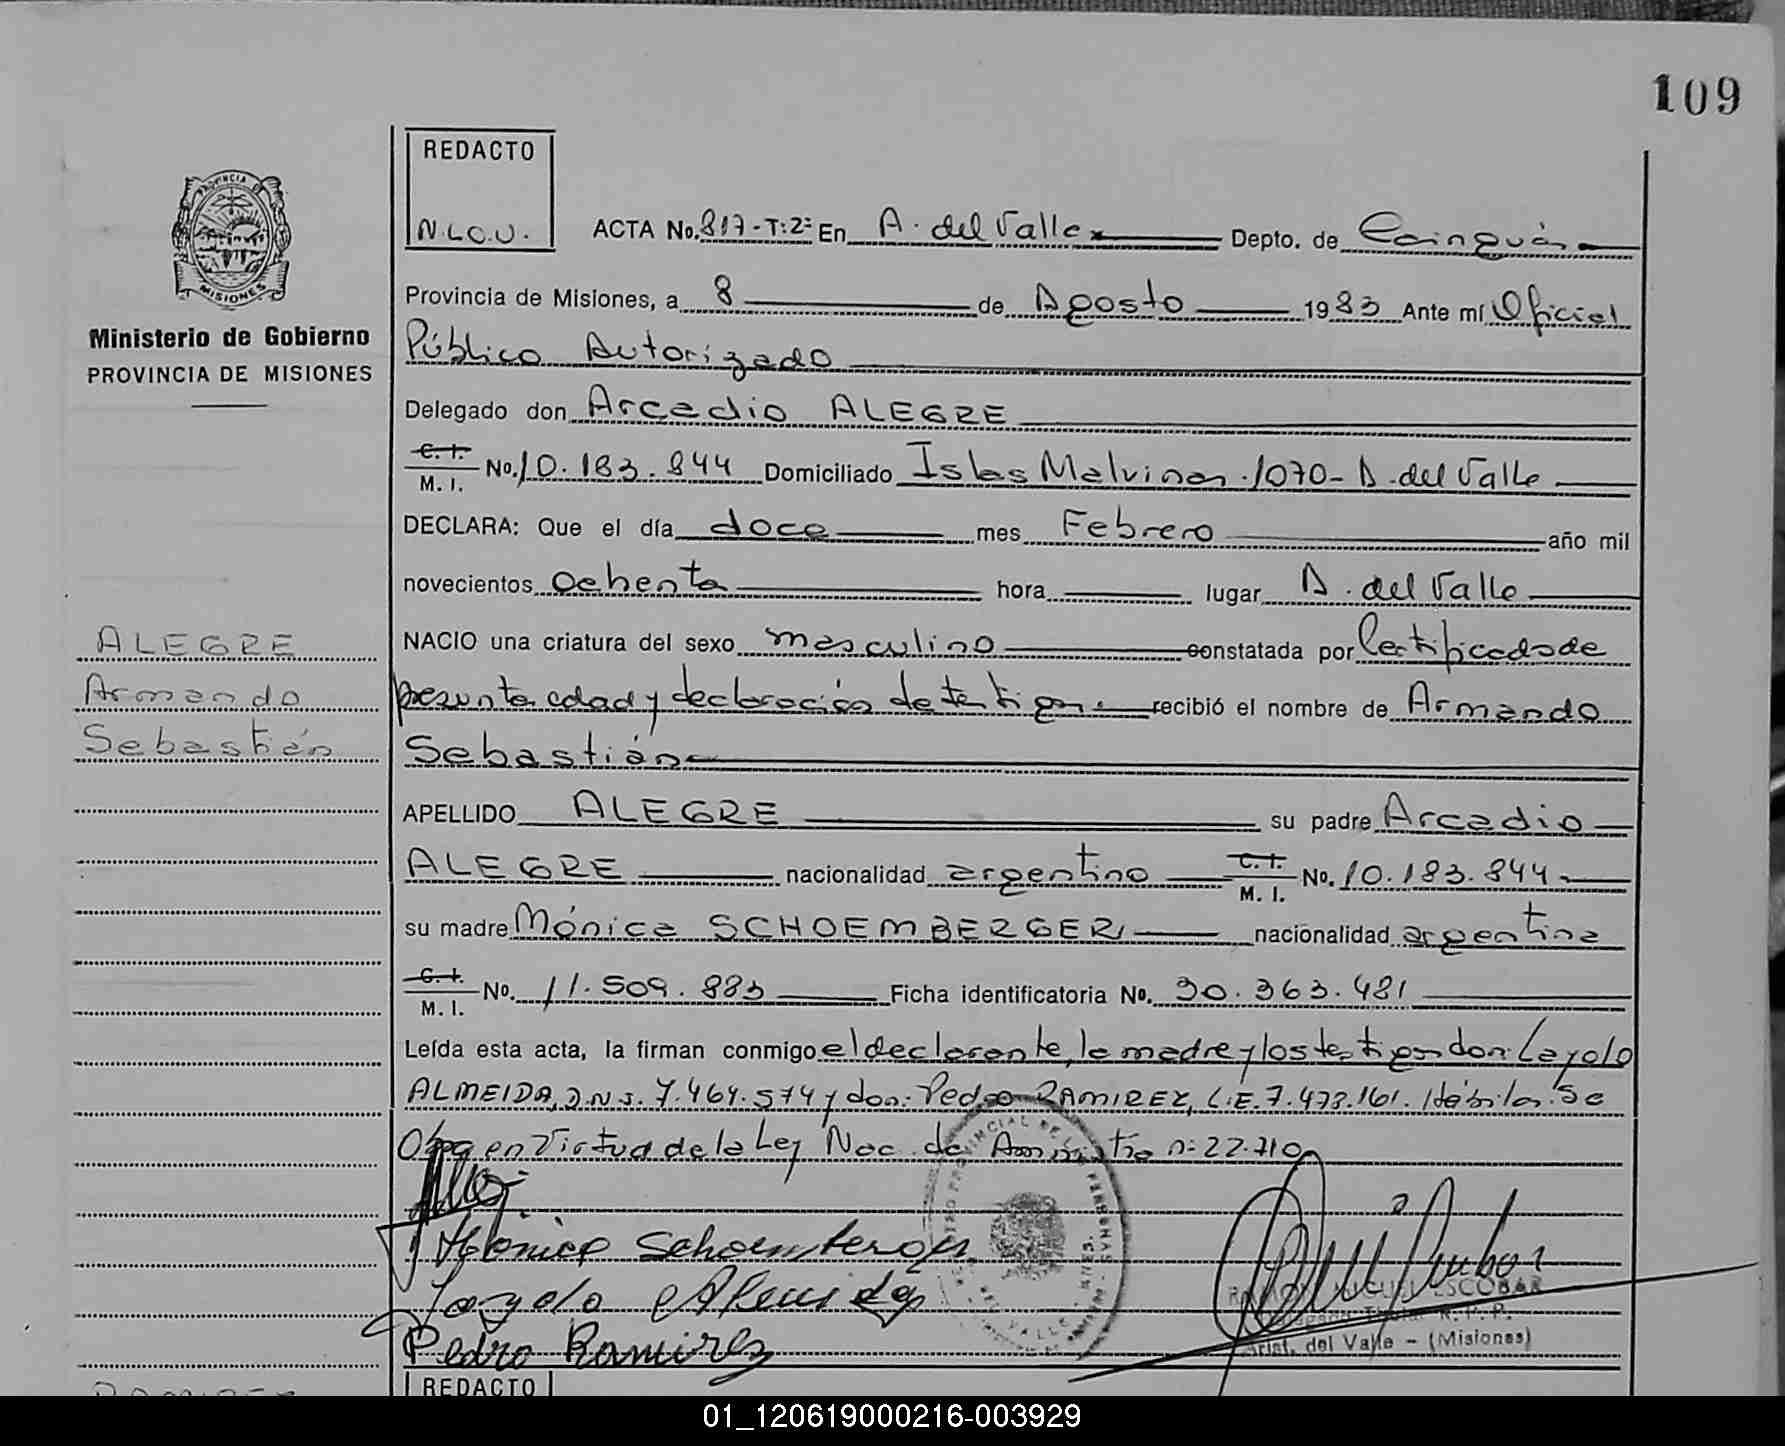 109
REDACTO
N.L.O.U.
ACTA No. 817-T:2º En A. del Valle Depto. de Cainguás
Provincia de Misiones, a 8 de Agosto 1983 Ante mí Oficial
Público Autorizado
Delegado don Arcadio ALEGRE
C. I. M. I. No. 10.183.844 Domiciliado Islas Malvinas 1070 - A. del Valle
DECLARA: Que el día doce mes Febrero año mil
novecientos ochenta hora lugar A. del Valle
NACIO una criatura del sexo masculino constatada por Certificado de
presunta edad y declaración de testigos recibió el nombre de Armando
Sebastián
APELLIDO ALEGRE su padre Arcadio
ALEGRE nacionalidad argentino C. I. M. I. No. 10.183.844
su madre Mónica SCHOEMBERGER nacionalidad argentina
C. I. M. I. No. 11.509.883 Ficha identificatoria No. 30.363.481
Leída esta acta, la firman conmigo el declarante, la madre y los testigos don: Layolo
ALMEIDA, D.N.I. 7.464.574 y don: Pedro RAMIREZ, L.E. 7.473.161. Hábiles. Se
Obra en Virtud de la Ley Nac. de Amnistia n: 22.710
Mónica Schoemberger
Layolo Almeida
Pedro Ramirez
ESCOBAR
R. P. P.
Arist. del Valle - (Misiones)
REGISTRO PROVINCIAL DE LAS PERSONAS
VALLE
MNES.
REDACTO
PROVINCIA DE
MISIONES
Ministerio de Gobierno
PROVINCIA DE MISIONES
ALEGRE
Armando
Sebastián
RAMIREZ
01_120619000216-003929